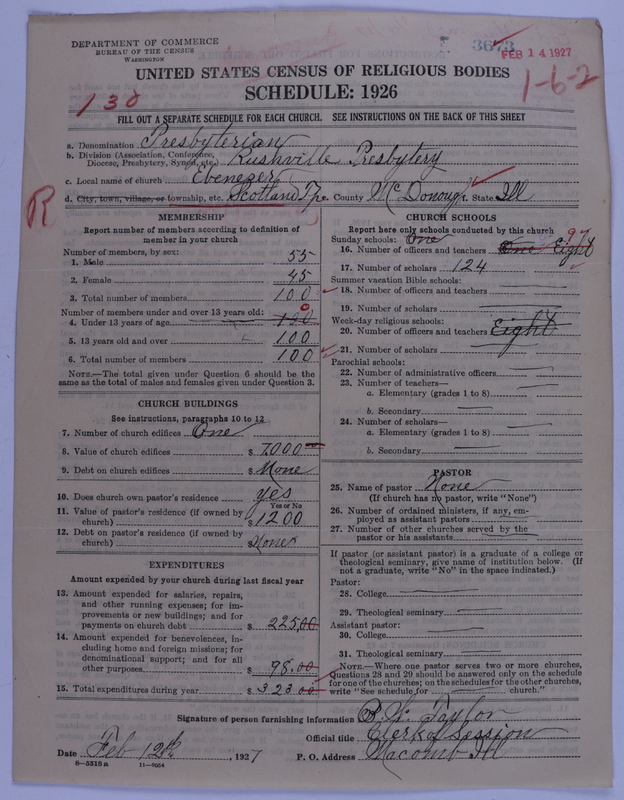 DEPARTMENT OF COMMERCE
BUREAU OF THE CENSUS
WASHINGTON
3673
FEB 14 1927
UNITED STATES CENSUS OF RELIGIOUS BODIES
SCHEDULE: 1926
130
1-6-2
FILL OUT A SEPARATE SCHEDULE FOR EACH CHURCH. SEE INSTRUCTIONS ON THE BACK OF THIS SHEET
a. Denomination Presbyterian
b. Division (Association, Conference, Diocese, Presbytery, Synod, etc.) Rushville Presbytery
c. Local name of church Ebenezer
d. City, town, village, or township, etc. Scotland Tp. County McDonough State Ill
R
MEMBERSHIP
Report number of members according to definition of
member in your church
Number of members, by sex:
1. Male 55
2. Female 45
3. Total number of members 100
Number of members under and over 13 years old:
4. Under 13 years of age 100 0
5. 13 years old and over 100
6. Total number of members 100
NOTE.—The total given under Question 6 should be
same as the total of males and females given under Question 3.
CHURCH BUILDINGS
See instructions, paragraphs 10 to 12
7. Number of church edifices One
8. Value of church edifices $ 7000
9. Debt on church edifices $ None
10. Does church own pastor's residence yes
Yes or No
11. Value of pastor's residence (if owned by
church) $ 1200
12. Debt on pastor's residence (if owned by
church) $ None
EXPENDITURES
Amount expended by your church during last fiscal year
13. Amount expended for salaries, repairs,
and other running expenses; for im-
provements or new buildings; and for
payments on church debt $ 225.00
14. Amount expended for benevolences, in-
cluding home and foreign missions; for
denominational support; and for all
other purposes $ 98.00
15. Total expenditures during year $ 323.00
CHURCH SCHOOLS
Report here only schools conducted by this church
Sunday schools: One
16. Number of officers and teachers One Eight 9
17. Number of scholars 124
Summer vacation Bible schools:
18. Number of officers and teachers
19. Number of scholars
Week-day religious schools:
20. Number of officers and teachers Eight
21. Number of scholars
Parochial schools:
22. Number of administrative officers
23. Number of teachers—
a. Elementary (grades 1 to 8)
b. Secondary
24. Number of scholars—
a. Elementary (grades 1 to 8)
b. Secondary
PASTOR
25. Name of pastor None
(If church has no pastor, write "None")
26. Number of ordained ministers, if any, em-
ployed as assistant pastors
27. Number of other churches served by the
pastor or his assistants
If pastor (or assistant pastor) is a graduate of a college or
theological seminary, give name of institution below. (If
not a graduate, write "No" in the space indicated.)
Pastor:
28. College
29. Theological seminary
Assistant pastor:
30. College
31. Theological seminary
NOTE.—Where one pastor serves two or more churches,
Questions 28 and 29 should be answered only on the schedule
for one of the churches; on the schedules for the other churches,
write "See schedule for church."
Signature of person furnishing information Taylor
Official title Clerk of Session
Date Feb 12th, 1927 P. O. Address Macomb Ill
8—5518 a 11—9054